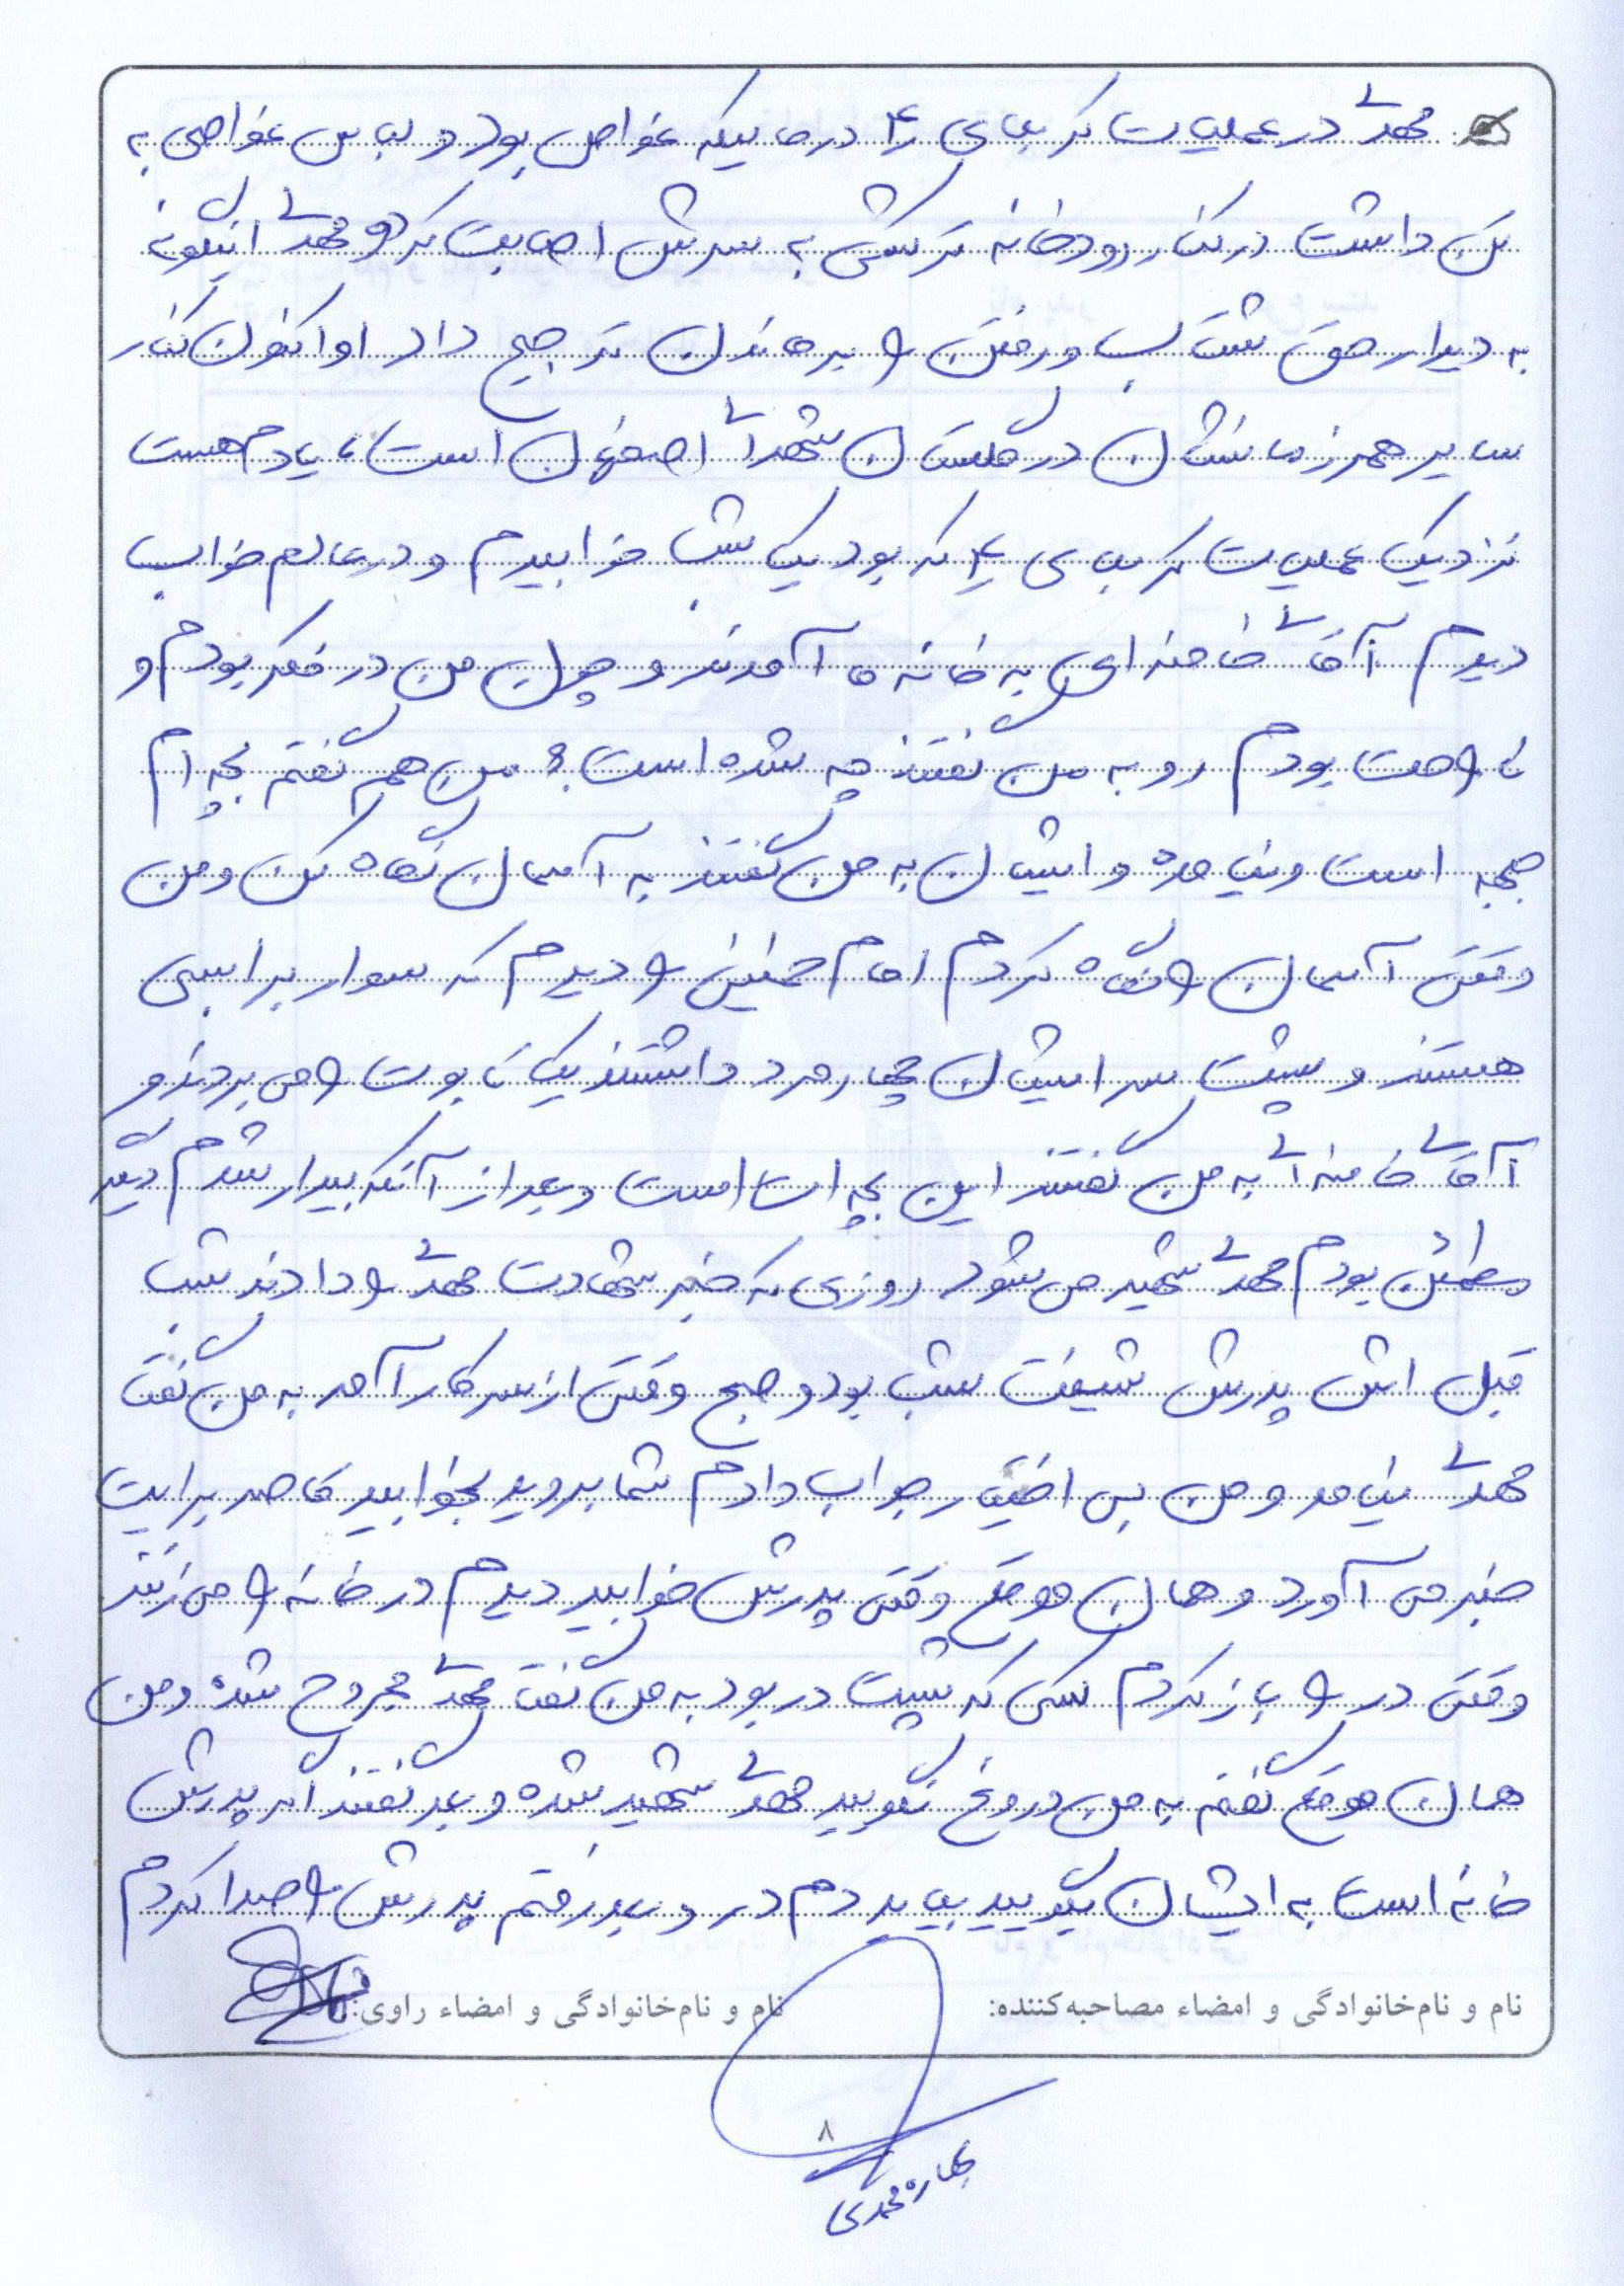 مهدی در عملیات کربلای ۴ در حالیکه غواص بود و لباس غواصی به
تن داشت در کنار رودخانه ترکشی به سرش اصابت کرد و مهدی اینگونه
به دیدار حق شتاب و رفتن را بر ماندن ترجیح داد او اکنون کنار
سایر همرزمانشان در گلستان شهدای اصفهان است، یادم هست
نزدیک عملیات کربلای ۴ که بود یک شب خوابیدم و در عالم خواب
دیدم آقای خامنه ای به خانه ما آمدند و چون من در فکر بودم و
ناراحت بودم رو به من گفتند چه شده است؟ من هم گفتم بچه ام
جبهه است و نیامده و ایشان به من گفتند به آسمان نگاه کن و من
وقتی آسمان را نگاه کردم امام خمینی را دیدم که سوار بر اسبی
هستند و پشت سر ایشان چهار مرد داشتند یک تابوت را می بردند و
آقای خامنه ای به من گفتند این بچه ات است و بعد از آنکه بیدار شدم دیگر
مطمئن بودم مهدی شهید می شود روزی که خبر شهادت مهدی را دادند شب
قبل اش پدرش شیفت شب بود و صبح وقتی از سر کار آمد به من گفت
مهدی نیامد و من بی اختیار جواب دادم شما بروید بخوابید قاصد برایت
خبر می آورد و همان موقع وقتی پدرش خوابید دیدم در خانه را می زنند
وقتی در را باز کردم کسی که پشت در بود به من گفت مهدی مجروح شده و من
همان موقع گفتم به من دروغ نگویید مهدی شهید شده و بعد گفتند اگر پدرش
خانه است به ایشان بگویید بیاید دم در و بعد رفتم پدرش را صدا کردم
نام و نام‌خانوادگی و امضاء مصاحبه‌کننده: نام و نام‌خانوادگی و امضاء راوی:
۸
بهاره محمدی